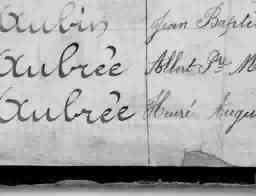 Aubin Jean Bapti
Aubrée Albert Pre M
Aubrée Henri Augu